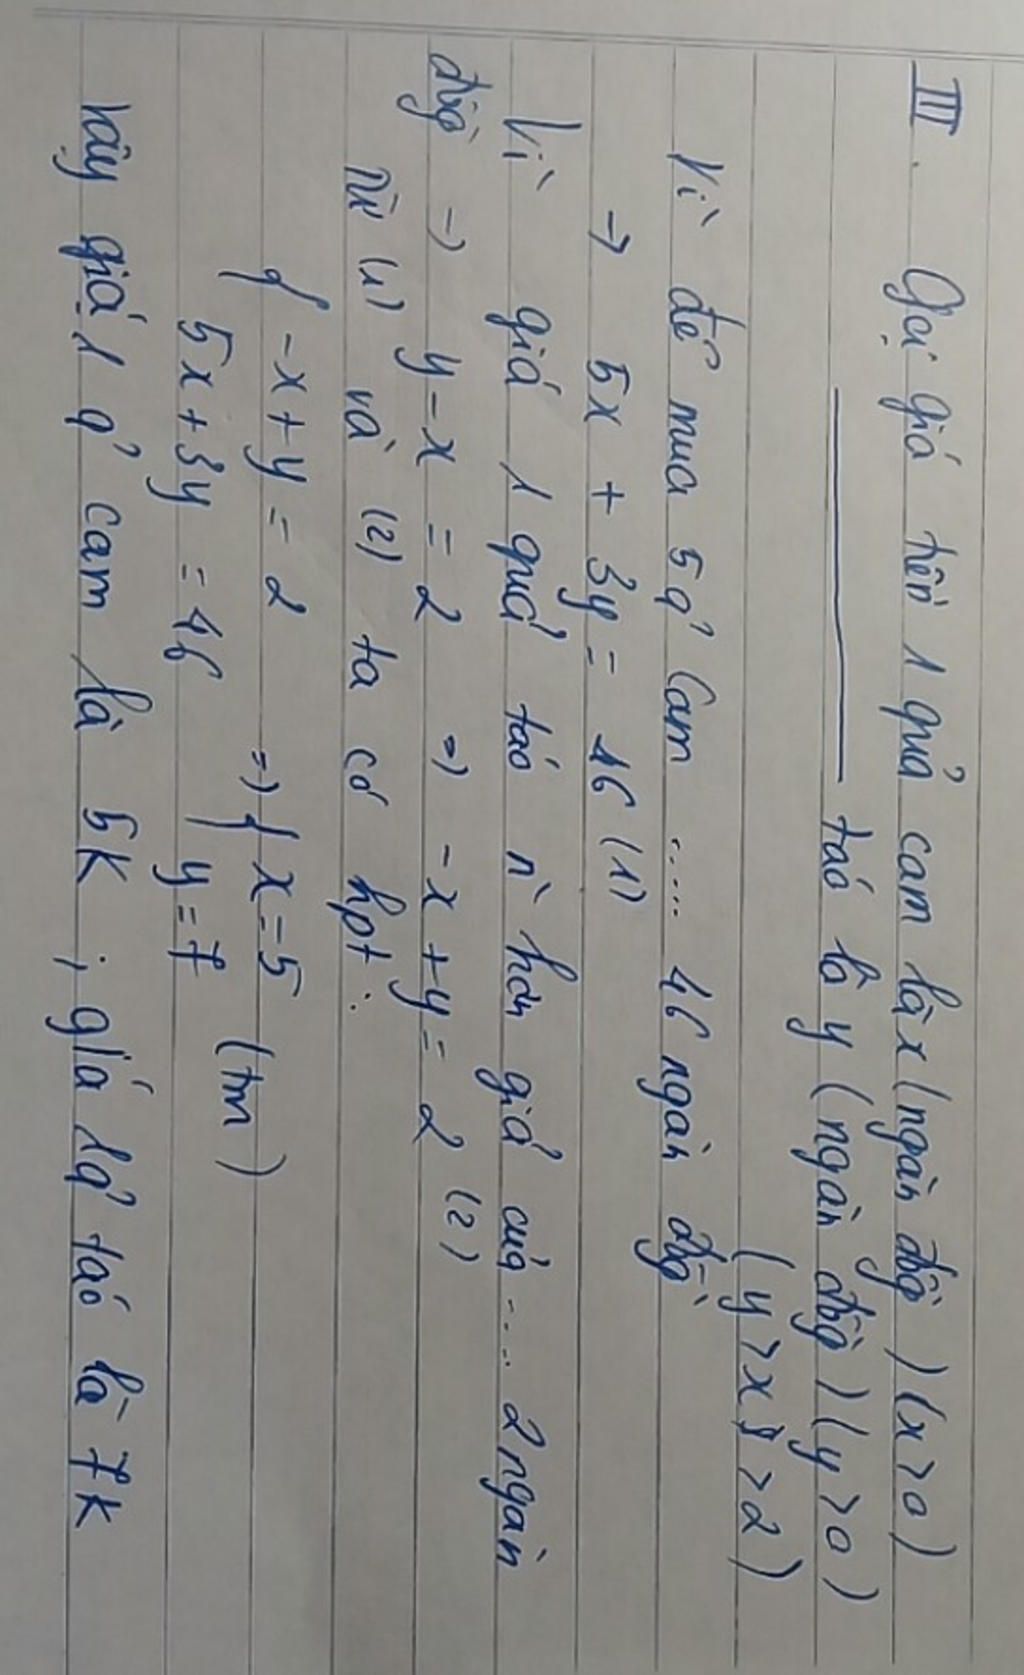 III. Gọi giá tiền 1 quả cam là x (ngàn đồng) (x > 0)
táo là y (ngàn đồng) (y > 0)
(y > x > 2)
Vì để mua 5 q' cam ..... 46 ngàn đồng
→ 5x + 3y = 46 (1)
Vì giá 1 quả táo n` hơn giá của .... 2 ngàn
đồng → y - x = 2 => -x + y = 2 (2)
Từ (1) và (2) ta có hpt:
{ -x + y = 2 => { x = 5 (tm)
5x + 3y = 46 y = 7
Vậy giá 1 q' cam là 5k ; giá 1 q' táo là 7k